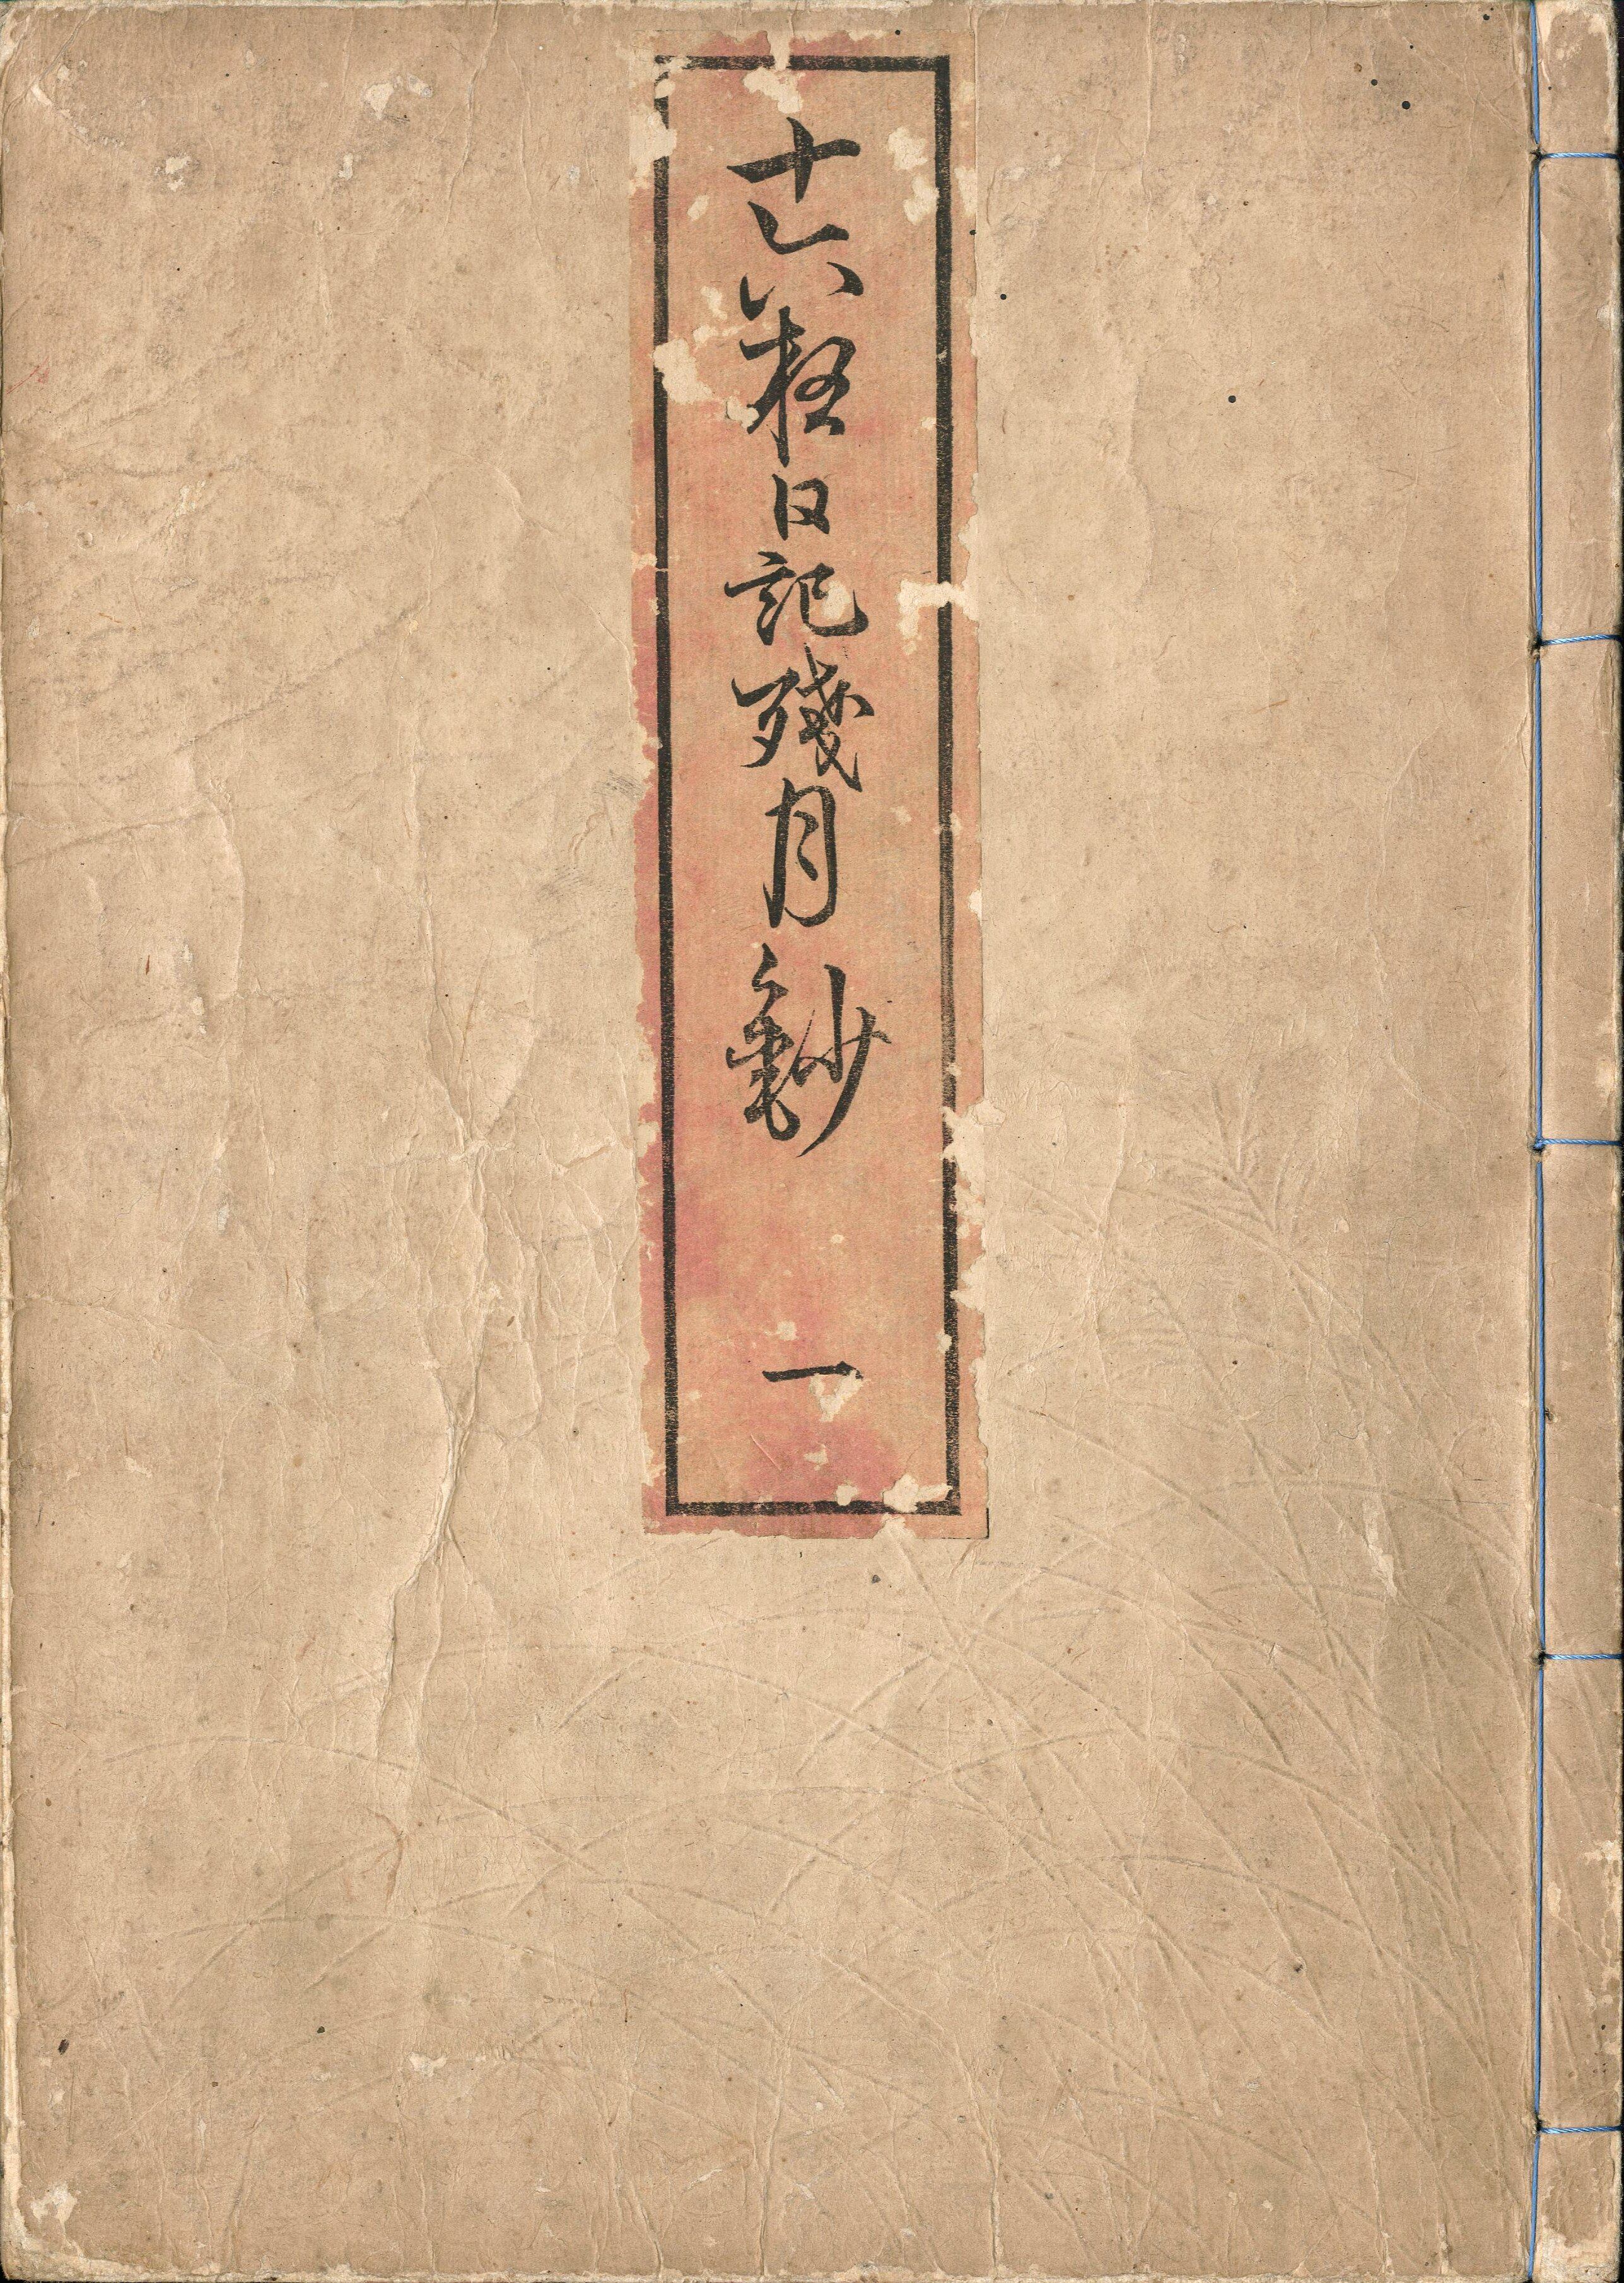 十六夜日記殘月鈔 一